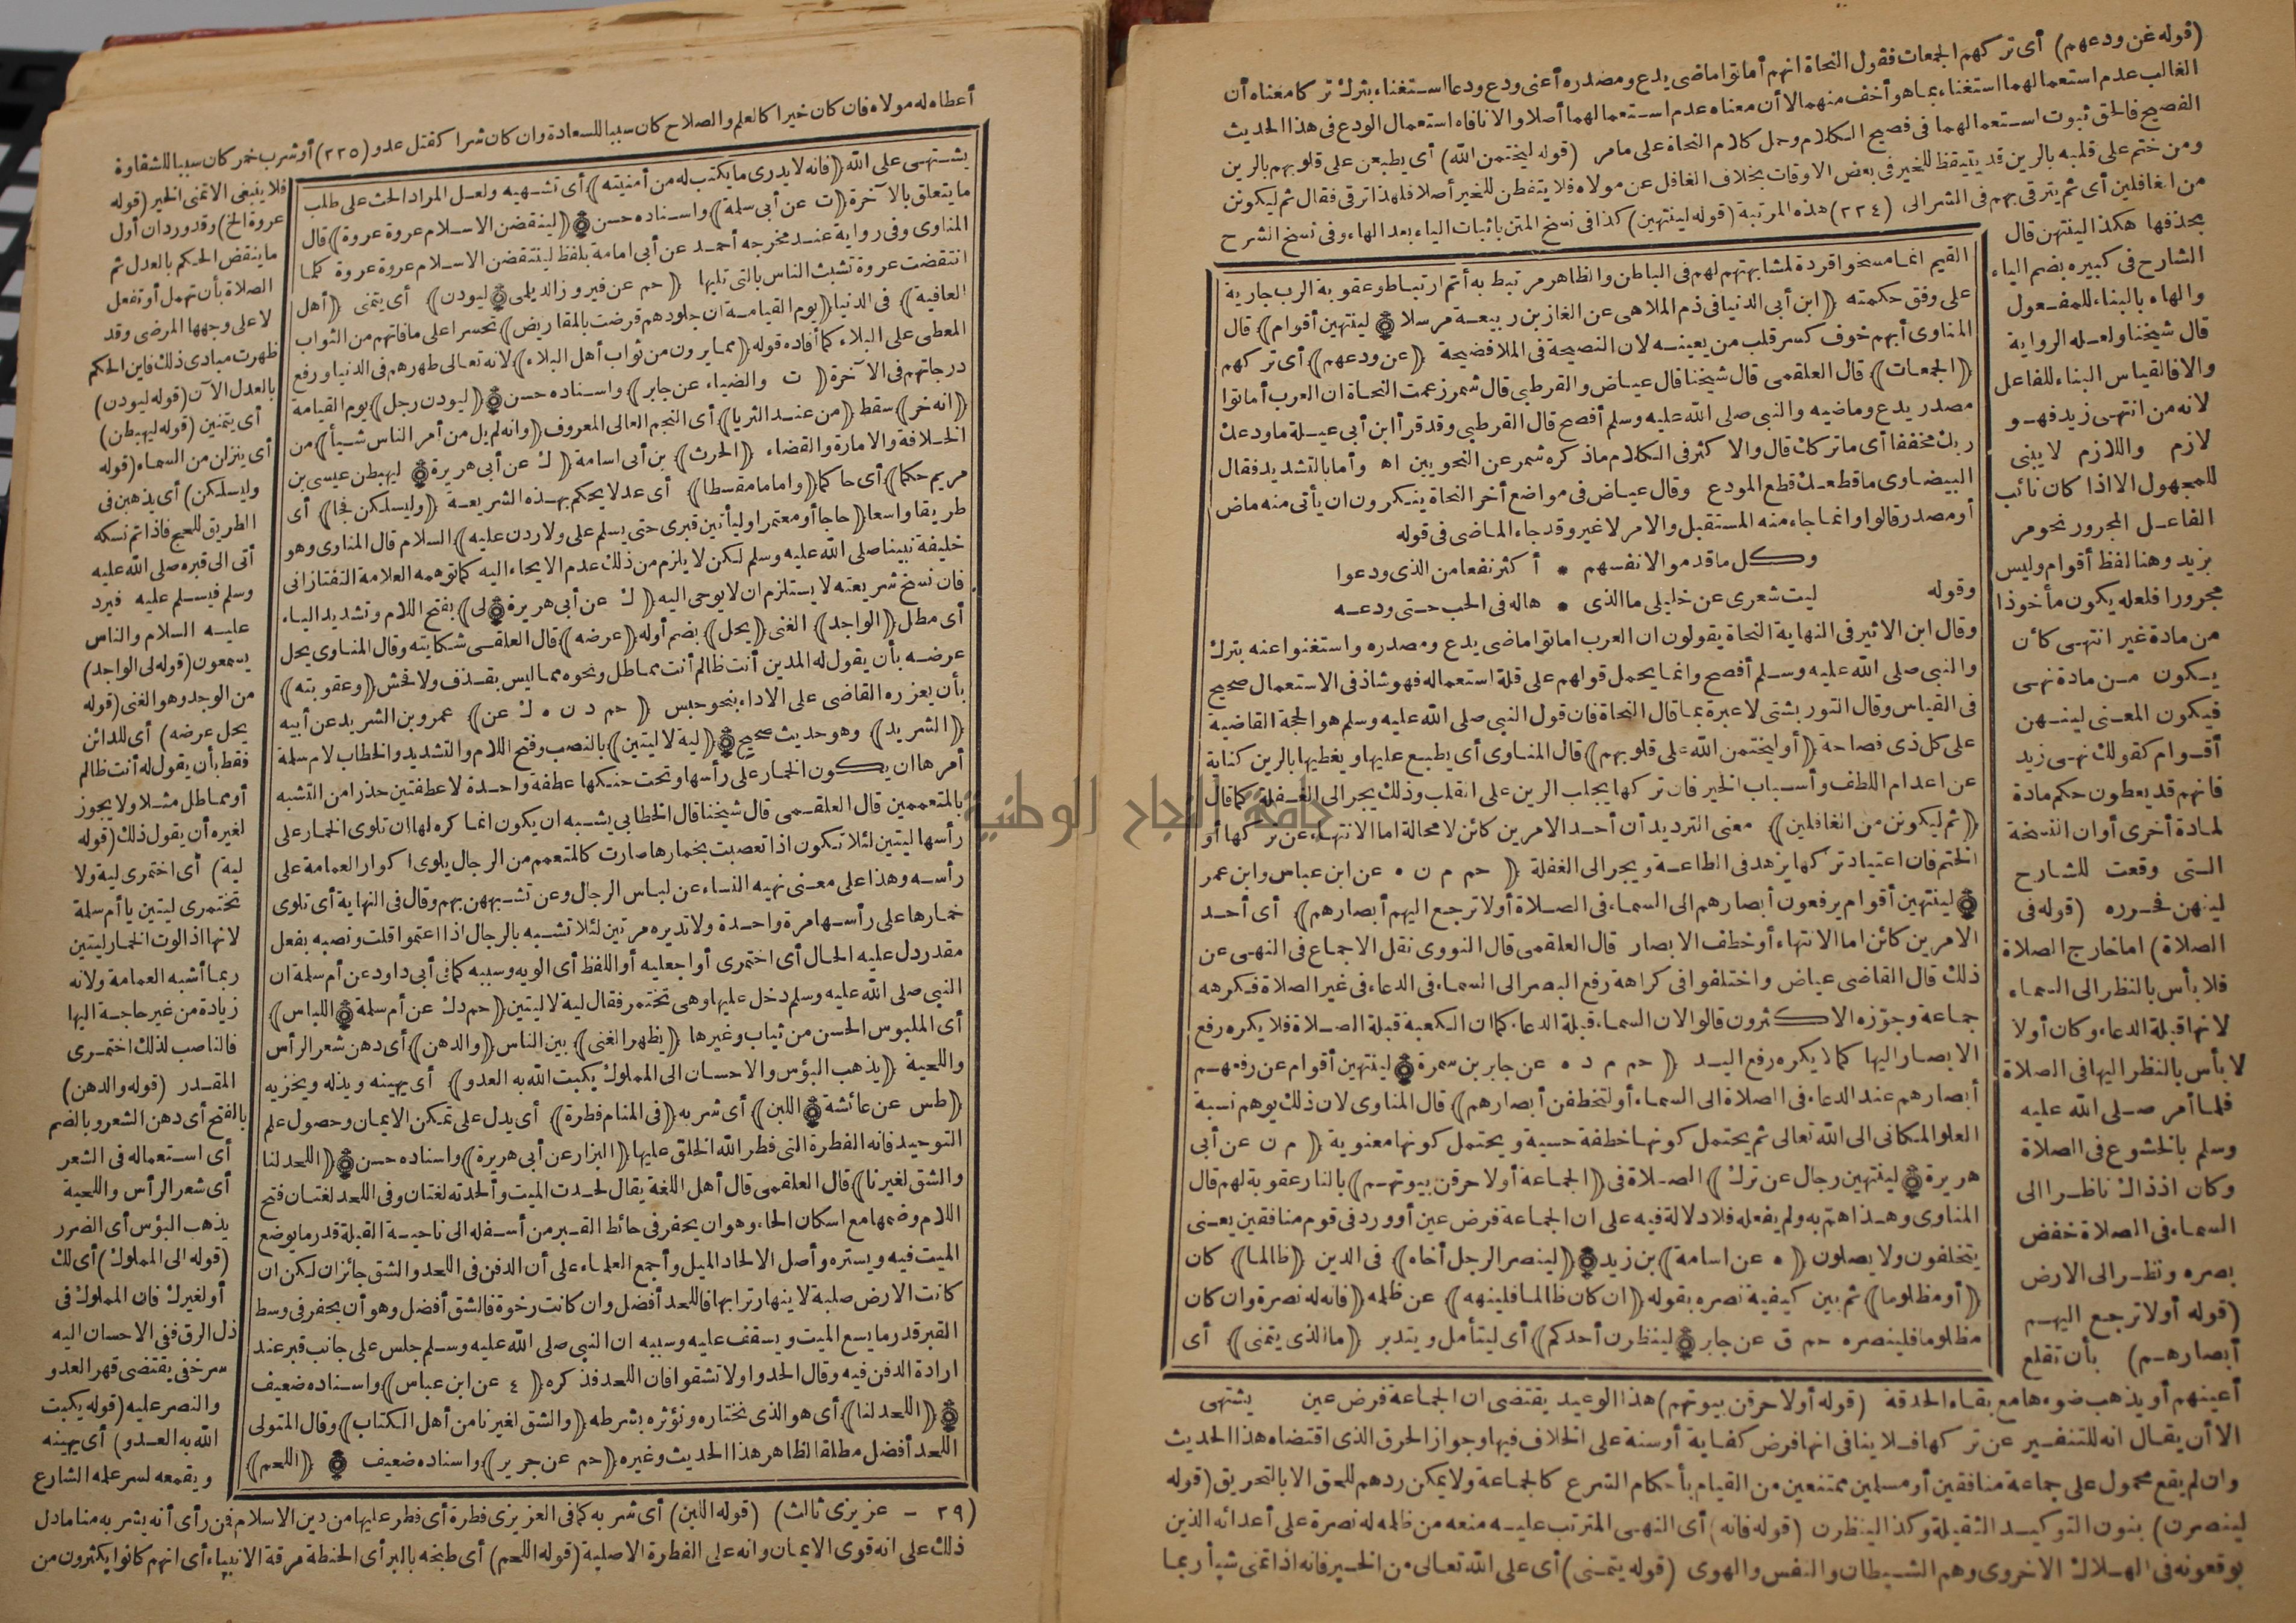 (قوله عن ودعهم) أى تركهم الجمعات فقول النحاة انهم أماتوا ماضى يدع ومصدره أعنى ودع ودعا استغناء بترك تركا معناه أن
الغالب عدم استعمالهما استغناء بما هو أخف منهما لا أن معناه عدم استعمالهما أصلا والا نافاه استعمال الودع فى هذا الحديث
الفصيح فالحق ثبوت استعمالهما فى فصيح الكلام وحمل كلام النحاة على مامر (قوله ليختمن الله) أى يطبعن على قلوبهم بالرين
ومن ختم على قلبه بالرين قد يتيقظ للخير فى بعض الاوقات بخلاف الغافل عن مولاه فلا يتفطن للخير أصلا فلهذا ترقى فقال ثم ليكونن
من الغافلين أى ثم يترقى بهم فى الشر الى (٢٢٤) هذه المرتبة (قوله لينتهين) كذا فى نسخ المتن باثبات الياء بعد الهاء وفى نسخ الشرح
بحذفها هكذا لينتهن قال
الشارح فى كبيره بضم الياء
والهاء بالبناء للمفعول
قال شيخنا ولعله الرواية
والا فالقياس البناء للفاعل
لانه من انتهى زيد فهو
لازم واللازم لا يبنى
للمجهول الا اذا كان نائب
الفاعل المجرور نحو مر
بزيد وهنا لفظ أقوام وليس
مجرورا فلعله يكون مأخوذا
من مادة غير انتهى كأن
يكون من مادة نهى
فيكون المعنى لينهن
أقوام كقولك نهى زيد
فانهم قد يعطون حكم مادة
لمادة أخرى أو ان النسخة
التى وقعت للشارح
لينهن فحرره (قوله فى
الصلاة) اما خارج الصلاة
فلا بأس بالنظر الى السماء
لانها قبلة الدعاء وكان أولا
لا بأس بالنظر اليها فى الصلاة
فلما أمر صلى الله عليه
وسلم بالخشوع فى الصلاة
وكان اذ ذاك ناظرا الى
السماء فى الصلاة خفض
بصره ونظر الى الارض
(قوله أو لا ترجع اليهم
أبصارهم) بأن تقلع
القيم انما مسخوا قردة لمشابهتهم لهم فى الباطن والظاهر مرتبط به أتم ارتباط وعقوبة الرب جارية
على وفق حكمته (ابن أبى الدنيا فى ذم الملاهى عن الغاز بن ربيعة مرسلا لينتهين أقوام) قال
المناوى أبهم خوف كسر قلب من يعينه لان النصيحة فى الملا فضيحة (عن ودعهم) أى تركهم
(الجمعات) قال العلقمى قال شيخنا قال عياض والقرطبى قال شمر زعمت النحاة ان العرب أماتوا
مصدر يدع وماضيه والنبى صلى الله عليه وسلم أفصح قال القرطبى وقد قرأ ابن أبى عبلة ما ودعك
ربك مخففا أى ما تركك قال والاكثر فى الكلام ما ذكره شمر عن النحويين اه وأما بالتشديد فقال
البيضاوى ما قطعك قطع المودع وقال عياض فى مواضع أخر النحاة ينكرون ان يأتى منه ماض
أو مصدر قالوا وانما جاء منه المستقبل والامر لا غير وقد جاء الماضى فى قوله
وكل ما قدموا لانفسهم * أكثر نفعا من الذى ودعوا
وقوله ليت شعرى عن خليلى ما الذى * هاله فى الحب حتى ودعه
وقال ابن الاثير فى النهاية النحاة يقولون ان العرب اماتوا ماضى يدع ومصدره واستغنوا عنه بترك
والنبى صلى الله عليه وسلم أفصح وانما يحمل قولهم على قلة استعماله فهو شاذ فى الاستعمال صحيح
فى القياس وقال التوربشتى لا عبرة بما قال النحاة فان قول النبى صلى الله عليه وسلم هو الحجة القاضية
على كل ذى فصاحة (أو ليختمن الله على قلوبهم) قال المناوى أى يطبع عليها ويغطيها بالرين كناية
عن اعدام اللطف وأسباب الخير فان تركها يجلب الرين على القلب وذلك يجر الى الغفلة كما قال
(ثم ليكونن من الغافلين) معنى الترديد أن أحد الامرين كائن لا محالة اما الانتهاء عن تركها أو
الختم فان اعتياد تركها يزهد فى الطاعة ويجر الى الغفلة (حم م ن ه عن ابن عباس وابن عمر
لينتهين أقوام يرفعون أبصارهم الى السماء فى الصلاة أو لا ترجع اليهم أبصارهم) أى أحد
الامرين كائن اما الانتهاء أو خطف الابصار قال العلقمى قال النووى نقل الاجماع فى النهى عن
ذلك قال القاضى عياض واختلفوا فى كراهة رفع البصر الى السماء فى الدعاء فى غير الصلاة فكرهه
جماعة وجوزه الاكثرون قالوا لان السماء قبلة الدعاء كما ان الكعبة قبلة الصلاة فلا يكره رفع
الابصار اليها كما لا يكره رفع اليد (حم م د ه عن جابر بن سمرة لينتهين أقوام عن رفعهم
أبصارهم عند الدعاء فى الصلاة الى السماء أو لتخطفن أبصارهم) قال المناوى لان ذلك يوهم نسبة
العلو المكانى الى الله تعالى ثم يحتمل كونها خطفة حسية ويحتمل كونها معنوية (م ن عن أبى
هريرة لينتهين رجال عن ترك) الصلاة فى (الجماعة أو لاحرقن بيوتهم) بالنار عقوبة لهم قال
المناوى وهذا هم به ولم يفعله فلا دلالة فيه على ان الجماعة فرض عين أو ورد فى قوم منافقين يعنى
يتخلفون ولا يصلون (ه عن اسامة) بن زيد (لينصر الرجل أخاه) فى الدين (ظالما) كان
(أو مظلوما) ثم بين كيفية نصره بقوله (ان كان ظالما فلينهه) عن ظلمه (فانه له نصرة وان كان
مظلوما فلينصره حم ق عن جابر لينظرن أحدكم) أى ليتأمل ويتدبر (ما الذى يتمنى) أى
أعينهم أو يذهب ضوءها مع بقاء الحدقة (قوله أو لاحرقن بيوتهم) هذا الوعيد يقتضى ان الجماعة فرض عين يشتهى
الا أن يقال انه للتنفير عن تركها فلا ينافى انها فرض كفاية أو سنة على الخلاف فيها وجواز الحرق الذى اقتضاه هذا الحديث
وان لم يقع محمول على جماعة منافقين أو مسلمين ممتنعين من القيام بأحكام الشرع كالجماعة ولا يمكن ردهم للحق الا بالتحريق (قوله
لينصرن) بنون التوكيد الثقيلة وكذا لينظرن (قوله فانه) أى النهى المترتب عليه منعه من ظلمه له نصرة على أعدائه الذين
يوقعونه فى الهلاك الاخروى وهم الشيطان والنفس والهوى (قوله يتمنى) أى على الله تعالى من الخير فانه اذا تمنى شيأ ربما
أعطاه له مولاه فان كان خيرا كالعلم والصلاح كان سببا للسعادة وان كان شرا كقتل عدو (٢٢٥) أو شرب خمر كان سببا للشقاوة
يشتهى على الله (فانه لا يدرى ما يكتب له من أمنيته) أى تشهيه ولعل المراد الحث على طلب
ما يتعلق بالآخرة (ت عن أبى سلمة) واسناده حسن (لينقضن الاسلام عروة عروة) قال
المناوى وفى رواية عند مخرجه أحمد عن أبى امامة بلفظ لينتقضن الاسلام عروة عروة كلما
انتقضت عروة تشبث الناس بالتى تليها (حم عن فيروز الديلمى ليودن) أى يتمنى (أهل
العافية) فى الدنيا (يوم القيامة ان جلودهم قرضت بالمقاريض) تحسرا على ما فاتهم من الثواب
المعطى على البلاء كما أفاده قوله (مما يرون من ثواب أهل البلاء) لانه تعالى طهرهم فى الدنيا ورفع
درجاتهم فى الآخرة (ت والضياء عن جابر) واسناده حسن (ليودن رجل) يوم القيامة
(انه خر) سقط (من عند الثريا) أى النجم العالى المعروف (وانه لم يل من أمر الناس شيأ) من
الخلافة والامارة والقضاء (الحرث) بن أبى اسامة (ك عن أبى هريرة ليهبطن عيسى بن
مريم حكما) أى حاكما (واماما مقسطا) أى عدلا يحكم بهذه الشريعة (وليسلكن فجا) أى
طريقا واسعا (حاجا أو معتمرا وليأتين قبرى حتى يسلم على ولاردن عليه) السلام قال المناوى وهو
خليفة نبينا صلى الله عليه وسلم لكن لا يلزم من ذلك عدم الايحاء اليه كما توهمه العلامة التفتازانى
فان نسخ شريعته لا يستلزم ان لا يوحى اليه (ك عن أبى هريرة لى) بفتح اللام وتشديد الياء
أى مطل (الواجد) الغنى (يحل) بضم أوله (عرضه) قال العلقمى شكايته وقال المناوى يحل
عرضه بأن يقول له المدين أنت ظالم أنت مماطل ونحوه مما ليس بقذف ولا فحش (وعقوبته)
بأن يعزره القاضى على الاداء بنحو حبس (حم د ن ه ك عن) عمرو بن الشريد عن أبيه
(الشريد) وهو حديث صحيح (لية لا ليتين) بالنصب وفتح اللام والتشديد والخطاب لام سلمة
أمرها ان يكون الخمار على رأسها وتحت حنكها عطفة واحدة لا عطفتين حذرا من التشبه
بالمتعممين قال العلقمى قال شيخنا قال الخطابى يشبه ان يكون انما كره لها ان تلوى الخمار على
رأسها ليتين لئلا تكون اذا تعصبت بخمارها صارت كالمتعمم من الرجال يلوى اكوار العمامة على
رأسه وهذا على معنى نهيه النساء عن لباس الرجال وعن تشبههن بهم وقال فى النهاية أى تلوى
خمارها على رأسها مرة واحدة ولا تديره مرتين لئلا تشبه بالرجال اذا اعتموا قلت ونصبه بفعل
مقدر دل عليه الحال أى اختمرى أو اجعليه أو اللفظ أى الويه وسببه كما فى أبى داود عن أم سلمة ان
النبى صلى الله عليه وسلم دخل عليها وهى تختمر فقال لية لا ليتين (حم د ك عن أم سلمة اللباس)
أى الملبوس الحسن من ثياب وغيرها (يظهر الغنى) بين الناس (والدهن) أى دهن شعر الرأس
واللحية (يذهب البؤس والاحسان الى المملوك يكبت الله به العدو) أى يهينه ويذله ويخزيه
(طس عن عائشة اللبن) أى شربه (فى المنام فطرة) أى يدل على تمكن الايمان وحصول علم
التوحيد فانه الفطرة التى فطر الله الخلق عليها (البزار عن أبى هريرة) واسناده حسن (اللحد لنا
والشق لغيرنا) قال العلقمى قال أهل اللغة يقال لحدت الميت وألحدته لغتان وفى اللحد لغتان فتح
اللام وضمها مع اسكان الحاء وهو ان يحفر فى حائط القبر من أسفله الى ناحية القبلة قدر ما يوضع
الميت فيه ويستره وأصل الالحاد الميل وأجمع العلماء على أن الدفن فى اللحد والشق جائزان لكن ان
كانت الارض صلبة لا ينهار ترابها فاللحد أفضل وان كانت رخوة فالشق أفضل وهو أن يحفر فى وسط
القبر قدر ما يسع الميت ويسقف عليه وسببه ان النبى صلى الله عليه وسلم جلس على جانب قبر عند
ارادة الدفن فيه وقال الحدوا ولا تشقوا فان اللحد فذكره (٤ عن ابن عباس) واسناده ضعيف
(اللحد لنا) أى هو الذى نختاره ونؤثره بشرطه (والشق لغيرنا من أهل الكتاب) وقال المتولى
اللحد أفضل مطلقا لظاهر هذا الحديث وغيره (حم عن جرير) واسناده ضعيف (اللحم)
فلا ينبغى الا تمنى الخير (قوله
عروة الخ) وقد ورد ان أول
ما ينقض الحكم بالعدل ثم
الصلاة بأن تهمل أو تفعل
لا على وجهها المرضى وقد
ظهرت مبادى ذلك فاين الحكم
بالعدل الآن (قوله ليودن)
أى يتمنين (قوله ليهبطن)
أى ينزلن من السماء (قوله
وليسلكن) أى يذهبن فى
الطريق للحج فاذا تم نسكه
أتى الى قبره صلى الله عليه
وسلم فيسلم عليه فيرد
عليه السلام والناس
يسمعون (قوله لى الواجد)
من الوجد وهو الغنى (قوله
يحل عرضه) أى للدائن
فقط بأن يقول له أنت ظالم
أو مماطل مثلا ولا يجوز
لغيره أن يقول ذلك (قوله
لية) أى اختمرى لية ولا
تختمرى ليتين يا أم سلمة
لانها اذا لوت الخمار ليتين
ربما أشبه العمامة ولانه
زيادة من غير حاجة اليها
فالناصب لذلك اختمرى
المقدر (قوله والدهن)
بالفتح أى دهن الشعر وبالضم
أى استعماله فى الشعر
أى شعر الرأس واللحية
يذهب البؤس أى الضرر
(قوله الى المملوك) أى لك
أو لغيرك فان المملوك فى
ذل الرق ففى الاحسان اليه
سر خفى يقتضى قهر العدو
والنصر عليه (قوله يكبت
الله به العدو) أى يهينه
ويقمعه لسر علمه الشارع
(٢٩ - عزيزى ثالث) (قوله اللبن) أى شربه كما فى العزيزى فطرة أى فطر عليها من دين الاسلام فمن رأى أنه يشربه مناما دل
ذلك على انه قوى الايمان وانه على الفطرة الاصلية (قوله اللحم) أى طبخه بالبر أى الحنطة مرقة الانبياء أى انهم كانوا يكثرون من
جامعة النجاح الوطنية